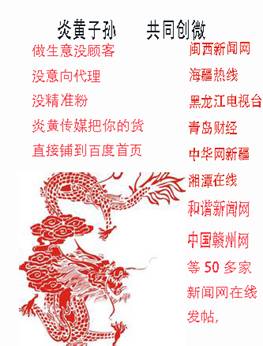 炎黄子孙 共同创微
做生意没顾客
没意向代理
没精准粉
炎黄传媒把你的货
直接铺到百度首页
闽西新闻网
海疆热线
黑龙江电视台
青岛财经
中华网新疆
湘潭在线
和谐新闻网
中国赣州网
等 50 多家
新闻网在线
发帖，